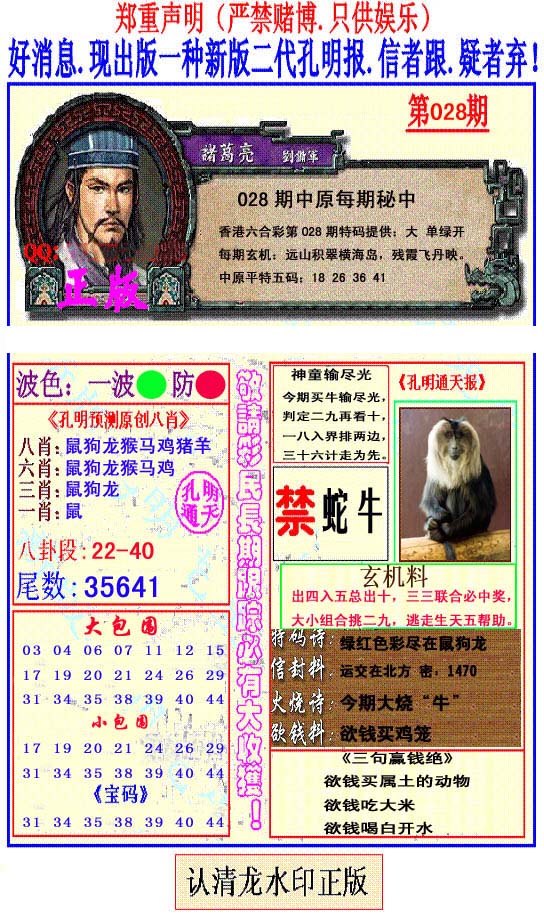 郑重声明（严禁赌博.只供娱乐）
好消息.现出版一种新版二代孔明报.信者跟.疑者弃!
第028期
諸葛亮 劉備軍
028 期中原每期秘中
香港六合彩第 028 期特码提供：大 单绿开
每期玄机：远山积翠横海岛，残霞飞丹映。
中原平特五码：18 26 36 41
QQ:
正版
波色：一波 防
《孔明预测原创八肖》
八肖:鼠狗龙猴马鸡猪羊
六肖:鼠狗龙猴马鸡
三肖:鼠狗龙
一肖:鼠
孔明
通天
八卦段:22-40
尾数:35641
大包围
03 04 06 07 11 12 15
17 19 20 21 24 26 29
31 34 35 38 39 40 44
小包围
17 19 20 21 24 26 29
31 34 35 38 39 40 44
《宝码》
31 34 35 38 39 40 44
敬請彩民長期跟踪必有大收獲！
神童输尽光
今期买牛输尽光，
判定二九再看十，
一八入界排两边，
三十六计走为先。
《孔明通天报》
禁 蛇牛
玄机料
出四入五总出十，三三联合必中奖，
大小组合挑二九，逃走生天五帮助。
特码诗:绿红色彩尽在鼠狗龙
信封料:运交在北方 密：1470
火烧诗:今期大烧“牛”
欲钱料:欲钱买鸡笼
《三句赢钱绝》
欲钱买属土的动物
欲钱吃大米
欲钱喝白开水
认清龙水印正版